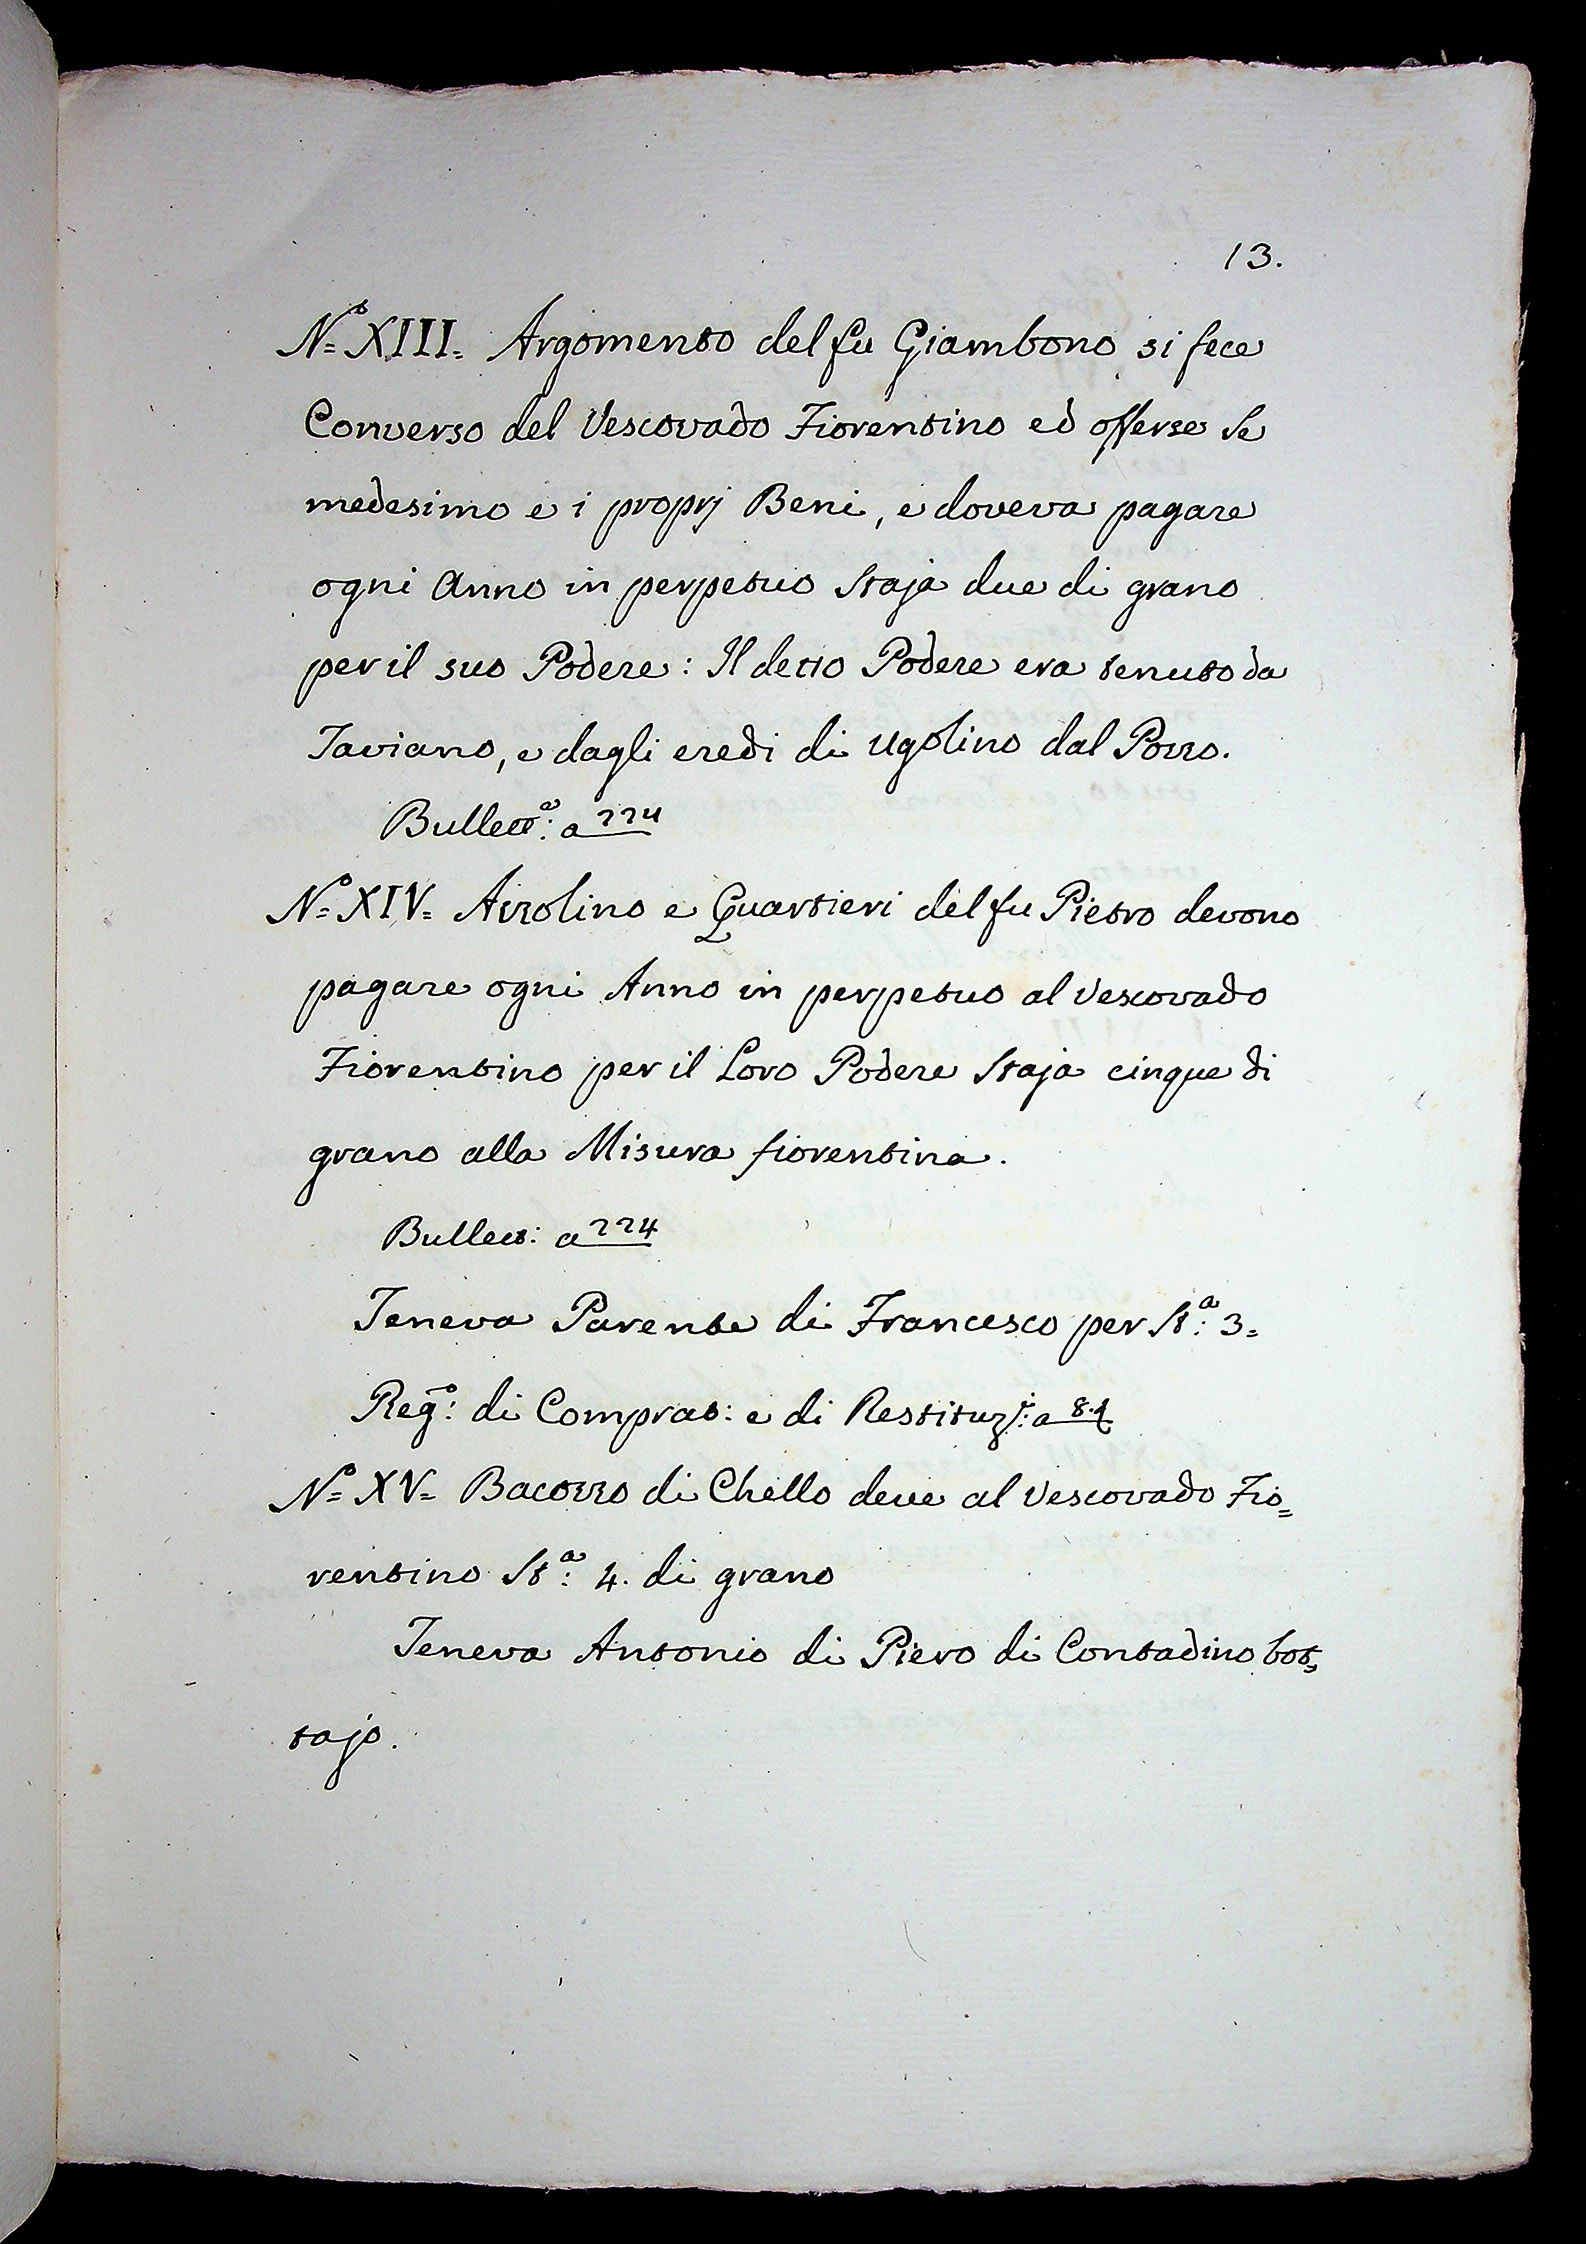 13.
N.o XIII. Argomento del fu Giambono si fece
Converso del Vescovado Fiorentino ed offerse se
medesimo e i proprj Beni, e doveva pagare
ogni Anno in perpetuo Staja due di grano
per il suo Podere: Il detto Podere era tenuto da
Taviano, e dagli eredi di Ugolino dal Pozzo.
Bullett.a: a 224
N.o XIV. Azzolino e Quartieri del fu Pietro devono
pagare ogni Anno in perpetuo al Vescovado
Fiorentino per il Loro Podere Staja cinque di
grano alla Misura fiorentina.
Bullett: a 224
Teneva Parente di Francesco per St.a: 3.
Reg.o: di Comprat: e di Restituz.i: a 84
N.o XV. Bacozzo di Chello deve al Vescovado Fio=
rentino St.a: 4. di grano
Teneva Antonio di Piero di Contadino bot=
tajo.